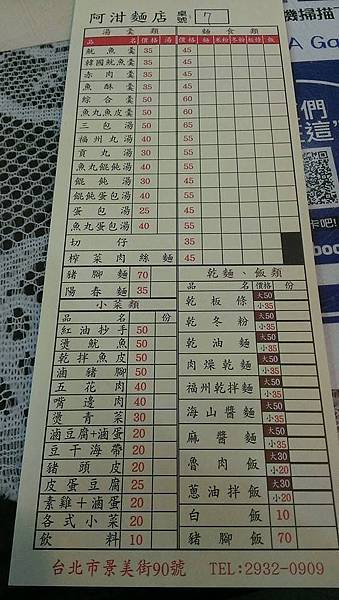 阿泔麵店 桌號 7
湯羹類 麵食類
品名 價格 湯 價格 麵 米粉 冬粉 板條 飯
魷魚羹 35 45
韓國魷魚羹 35 45
赤肉羹 35 45
魚酥羹 35 45
綜合羹 50 60
魚丸魚皮羹 50 60
三包湯 50 65
福州丸湯 40 55
貢丸湯 30 45
魚丸餛飩湯 40 55
餛飩湯 30 45
餛飩蛋包湯 40 55
蛋包湯 25 45
魚丸蛋包湯 40 55
切仔 35
榨菜肉絲麵 45
豬腳麵 70
陽春麵 35
小菜類
品名 份
紅油抄手 50
燙魷魚 50
乾拌魚皮 50
滷豬腳 50
五花肉 40
嘴邊肉 40
燙青菜 30
滷豆腐+滷蛋 20
豆干海帶 20
豬頭皮 20
皮蛋豆腐 25
素雞+滷蛋 20
各式小菜 20
飲料 10
乾麵、飯類
品名 價格 份
乾板條 大50 小35
乾冬粉 大50 小35
乾油麵 大50 小35
肉燥乾麵 大50 小35
福州乾拌麵 大50 小35
海山醬麵 大50 小35
麻醬麵 大50 小35
魯肉飯 大30 小20
蔥油拌飯 大30 小20
白飯 10
豬腳飯 70
台北市景美街90號 TEL:2932-0909
機掃描
A Ga
們
這
卡吧!